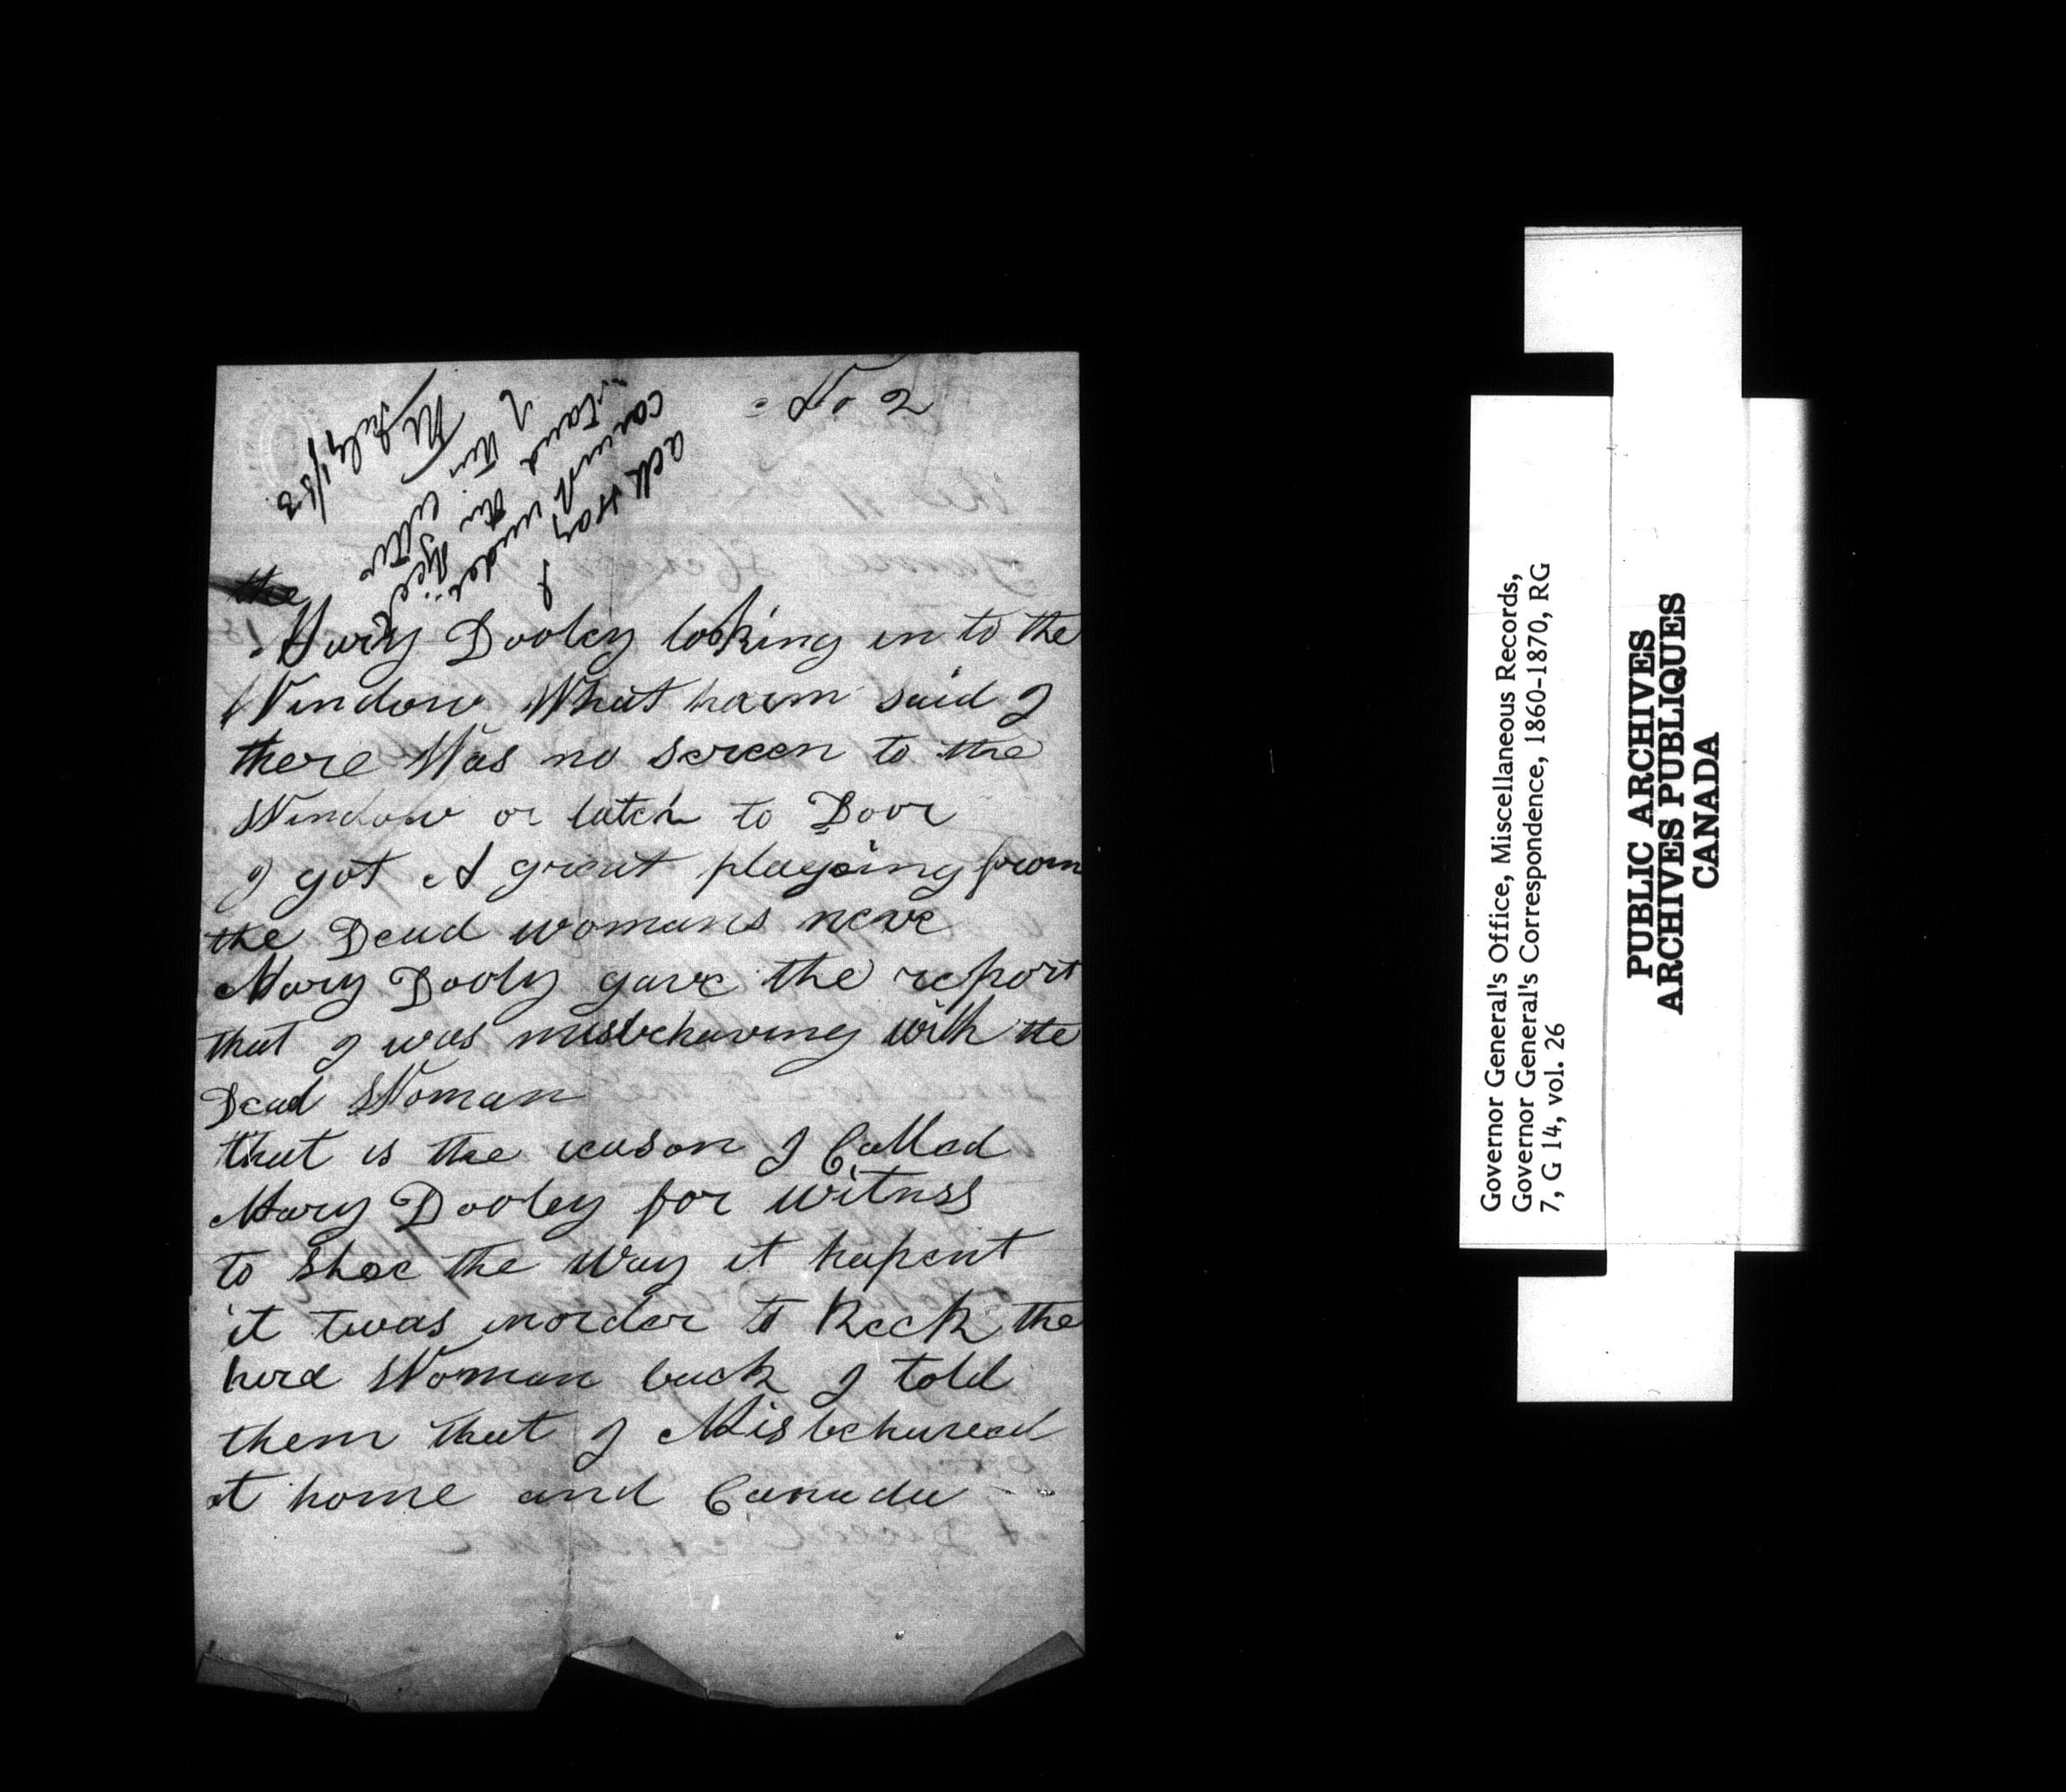 No 2
ack &
cannot under
stand the
the
Mary Dooley looking in to the
Window What harm said I
there Was no screen to the
Window or latch to Door
I got A great playing from
the Dead womans neve
Mary Dooly gave the report
that I was misbehaving with the
Dead Woman
that is the reason I Called
Mary Dooley for witnss
to shoe the way it hapent
it twas morder to Keek the
hird Woman back I told
them that I Misbehaved
at home and Canada
Governor General's Office, Miscellaneous Records,
Governor General's Correspondence, 1860-1870, RG
7, G 14, vol. 26
PUBLIC ARCHIVES
ARCHIVES PUBLIQUES
CANADA